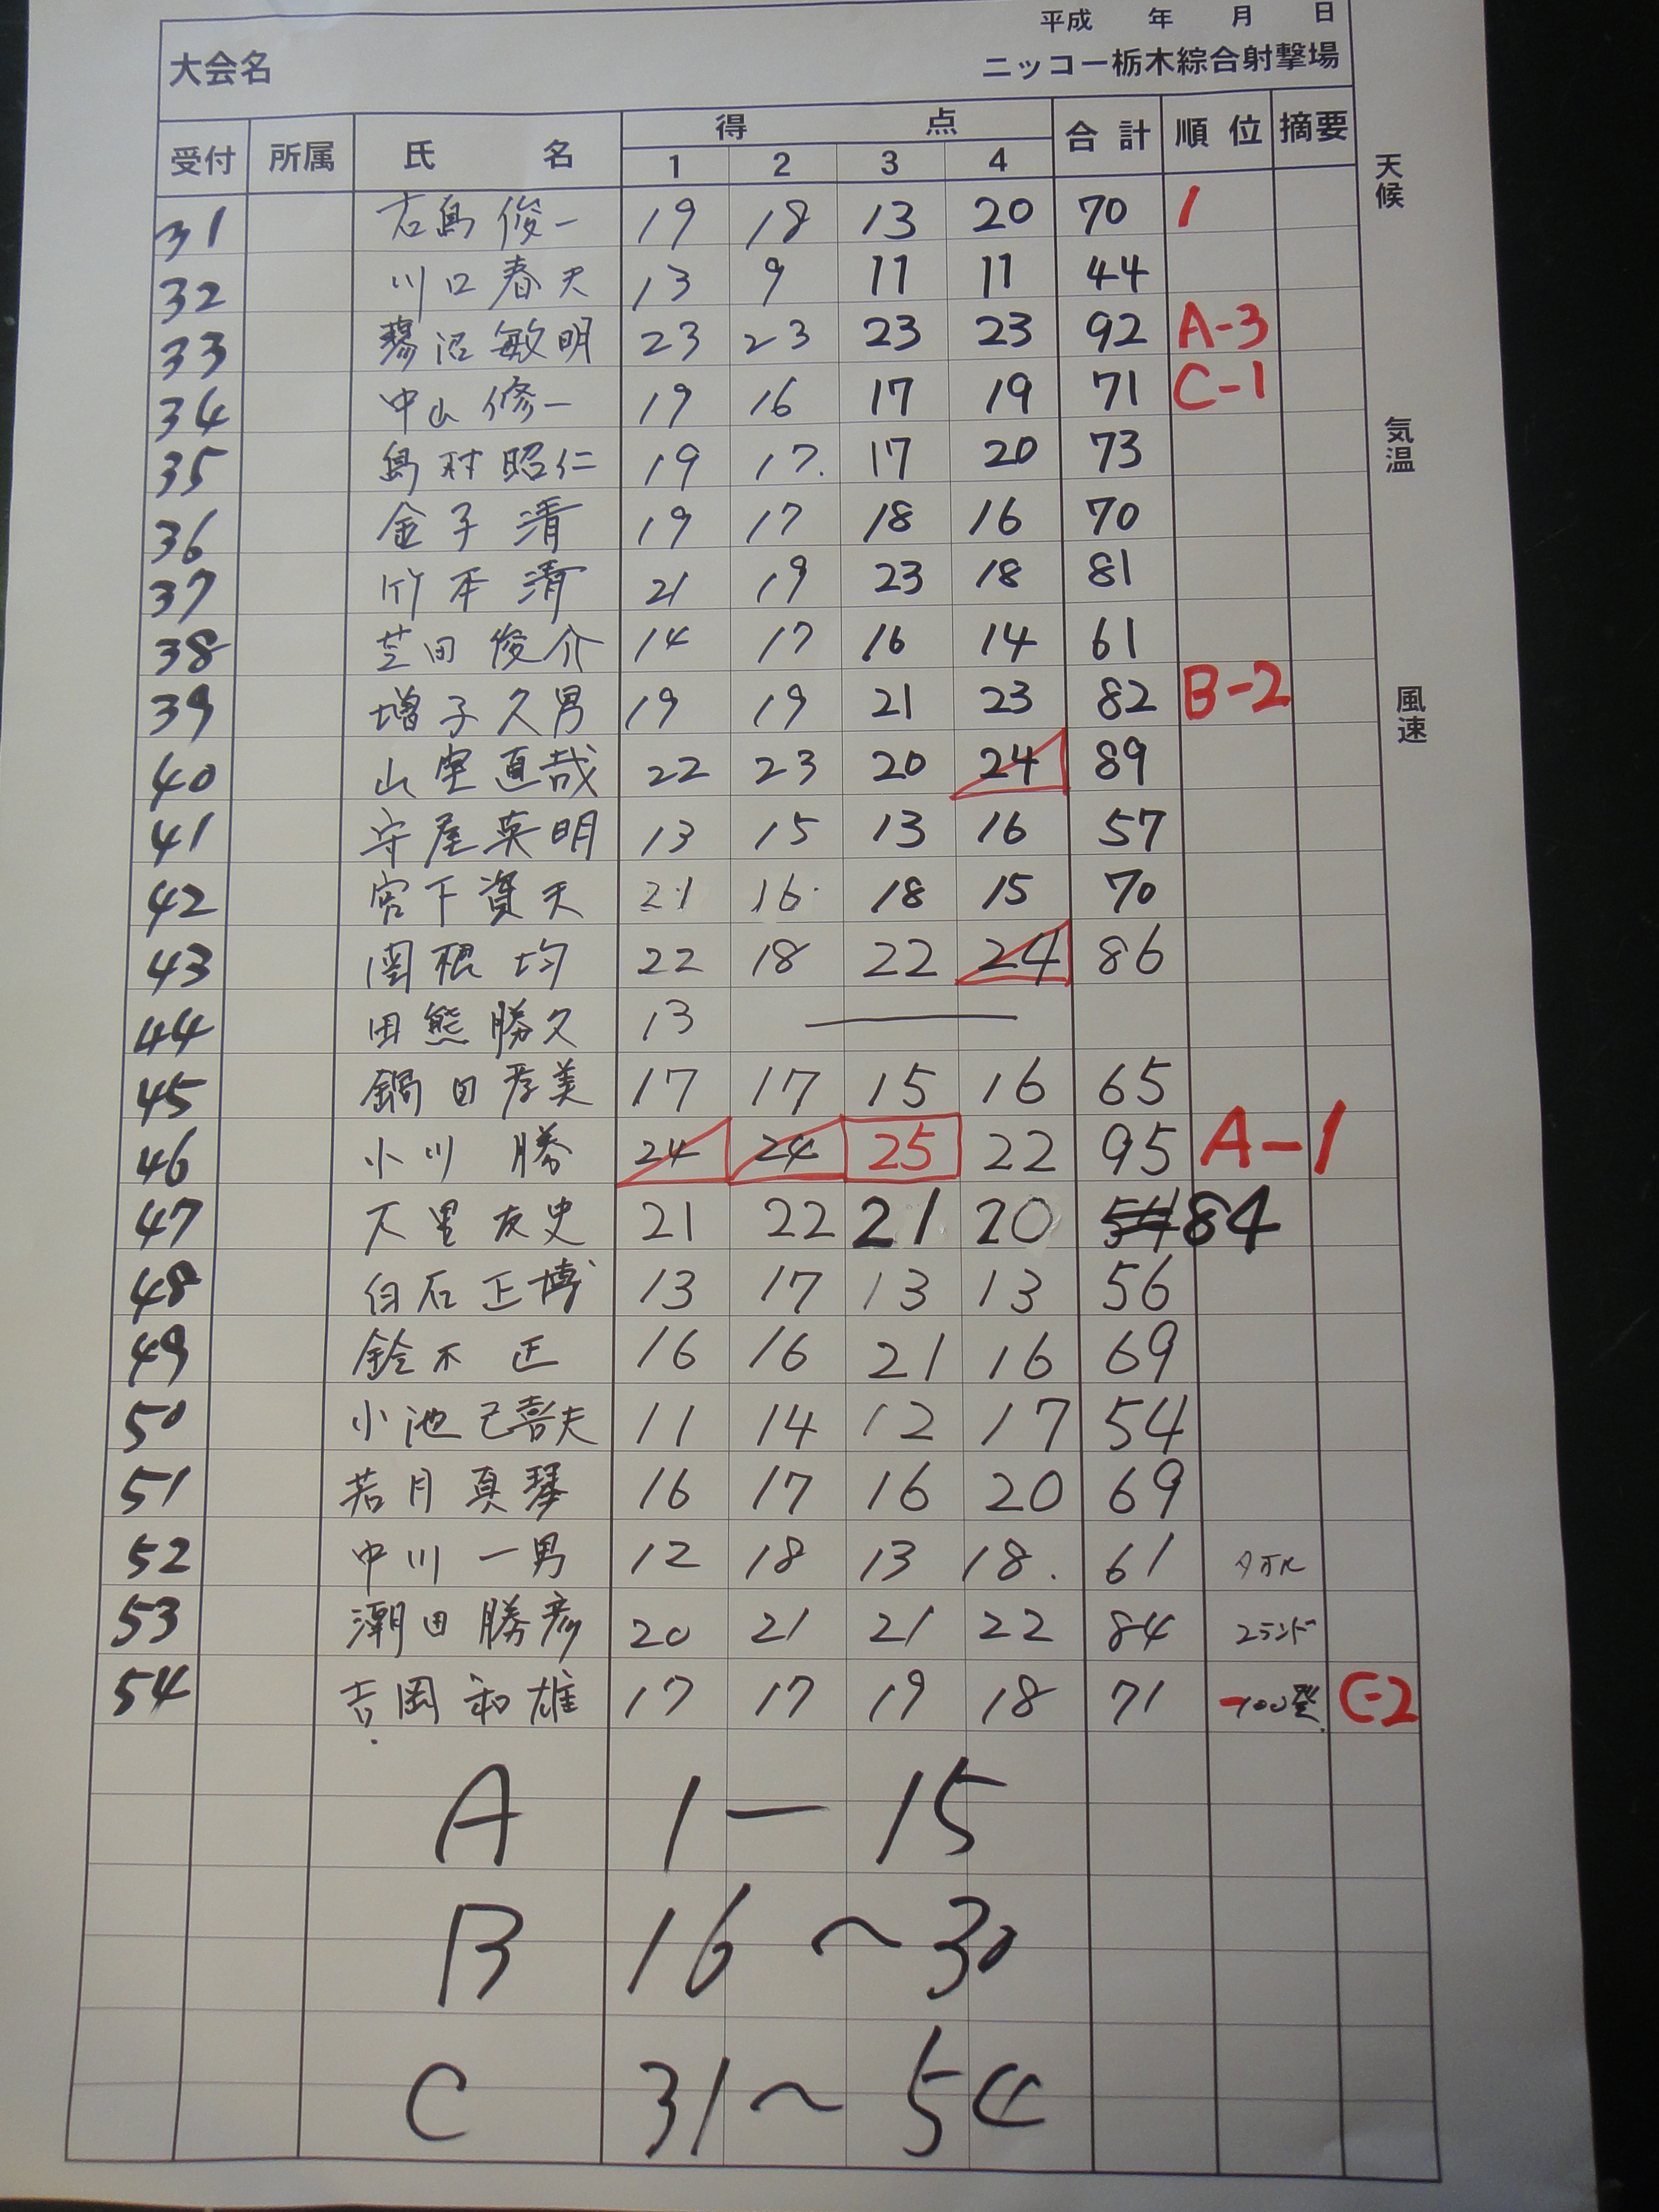 平成 年 月 日
大会名 ニッコー栃木綜合射撃場
受付 所属 氏名 得点 合計 順位 摘要
1 2 3 4
天候
気温
風速
31 俊一 19 18 13 20 70 1
32 川口春夫 13 9 11 11 44
33 沼敏明 23 23 23 23 92 A-3
34 中山修一 19 16 17 19 71 C-1
35 島村昭仁 19 17. 17 20 73
36 金子清 19 17 18 16 70
37 竹本清 21 19 23 18 81
38 芝田俊介 14 17 16 14 61
39 増子久男 19 19 21 23 82 B-2
40 山室直哉 22 23 20 24 89
41 守屋英明 13 15 13 16 57
42 宮下資夫 21 16 18 15 70
43 関根均 22 18 22 24 86
44 田熊勝久 13 ―
45 鍋田孝美 17 17 15 16 65
46 小川勝 24 24 25 22 95 A-1
47 友史 21 22 21 20 54 84
48 白石正博 13 17 13 13 56
49 鈴木正 16 16 21 16 69
50 小池己喜夫 11 14 12 17 54
51 若月真琴 16 17 16 20 69
52 中川一男 12 18 13 18. 61 タオル
53 潮田勝彦 20 21 21 22 84
54 吉岡和雄 17 17 19 18 71 -100発 C-2
A 1-15
B 16~30
C 31~54